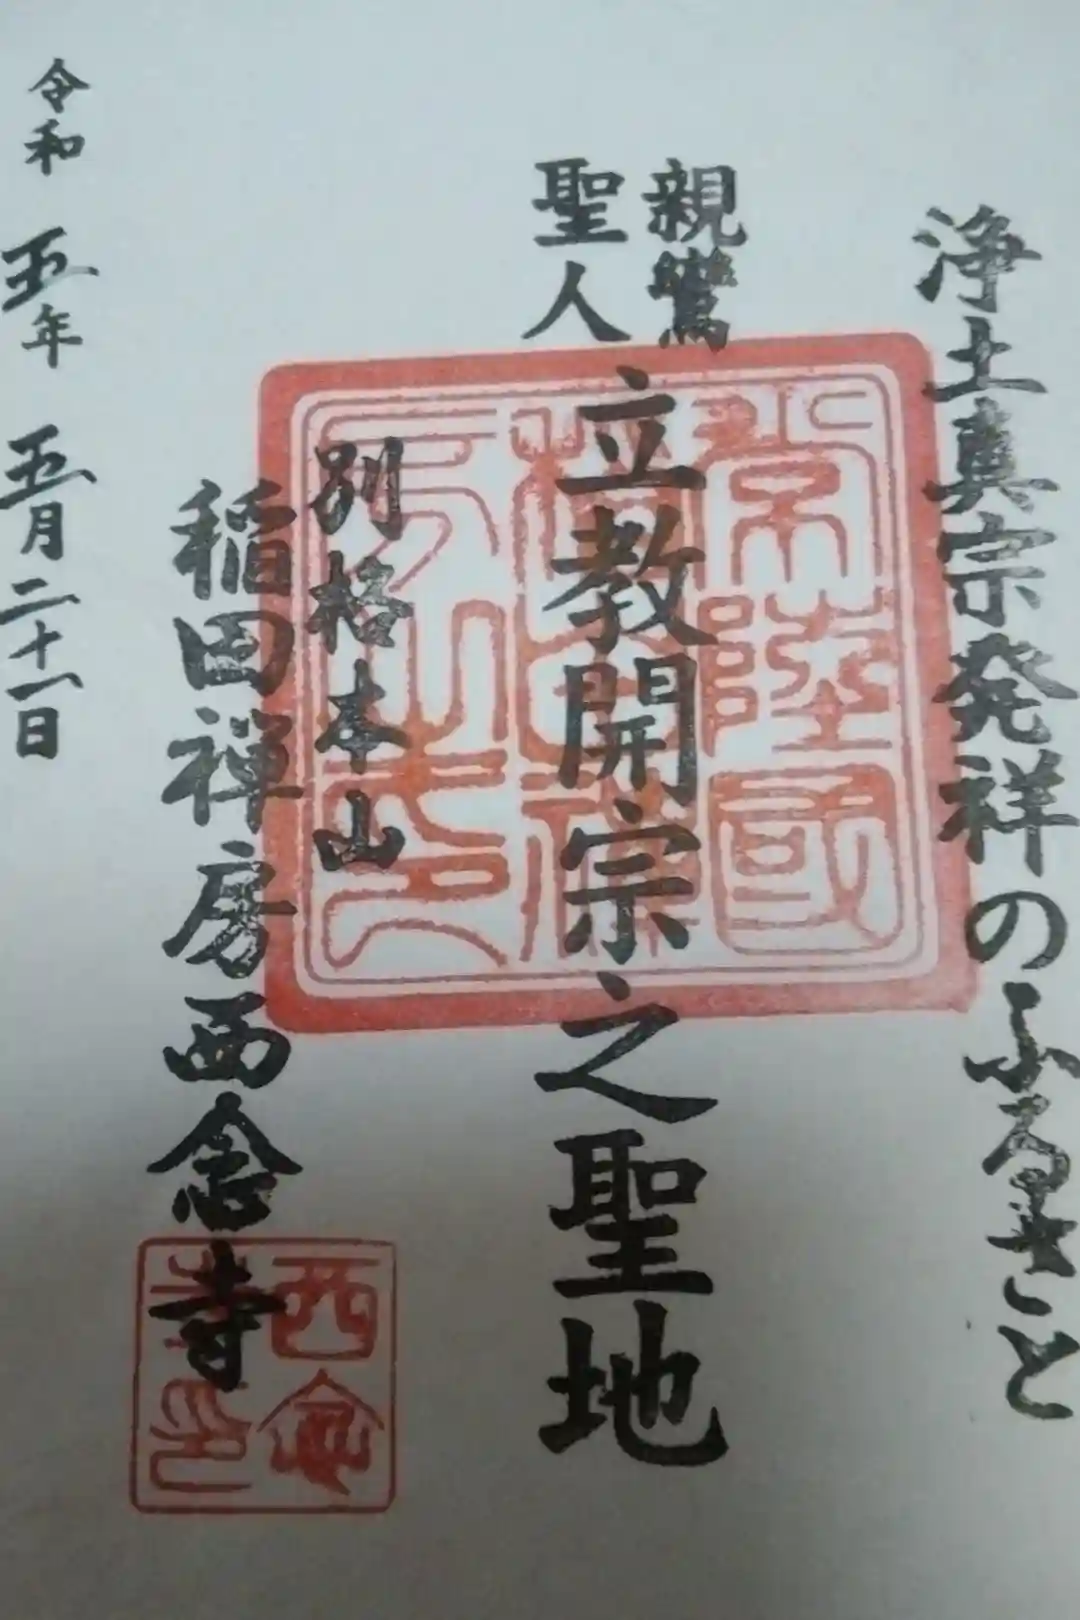 浄土真宗発祥のふるさと
親鸞
聖人
立教開宗之聖地
別格本山
稲田禅房西念寺
令和 五年 五月二十一日
常陸國
稲田禅
房之印
西念
寺印